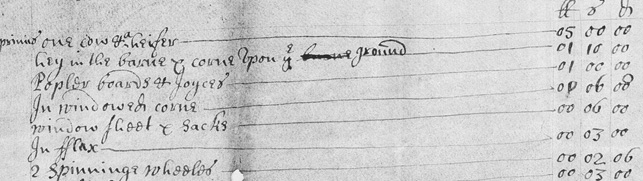 ll s d
primis one cow & a heifer 05 00 00
hey in the barne & corne upon ye ground 01 10 00
Popler boards & Joyces 01 00 00
In windowed corne 06 00
window sheet & sacks 00 06 00
In fflax 00 03 00
2 Spinninge wheeles 00 02 06
00 03 00